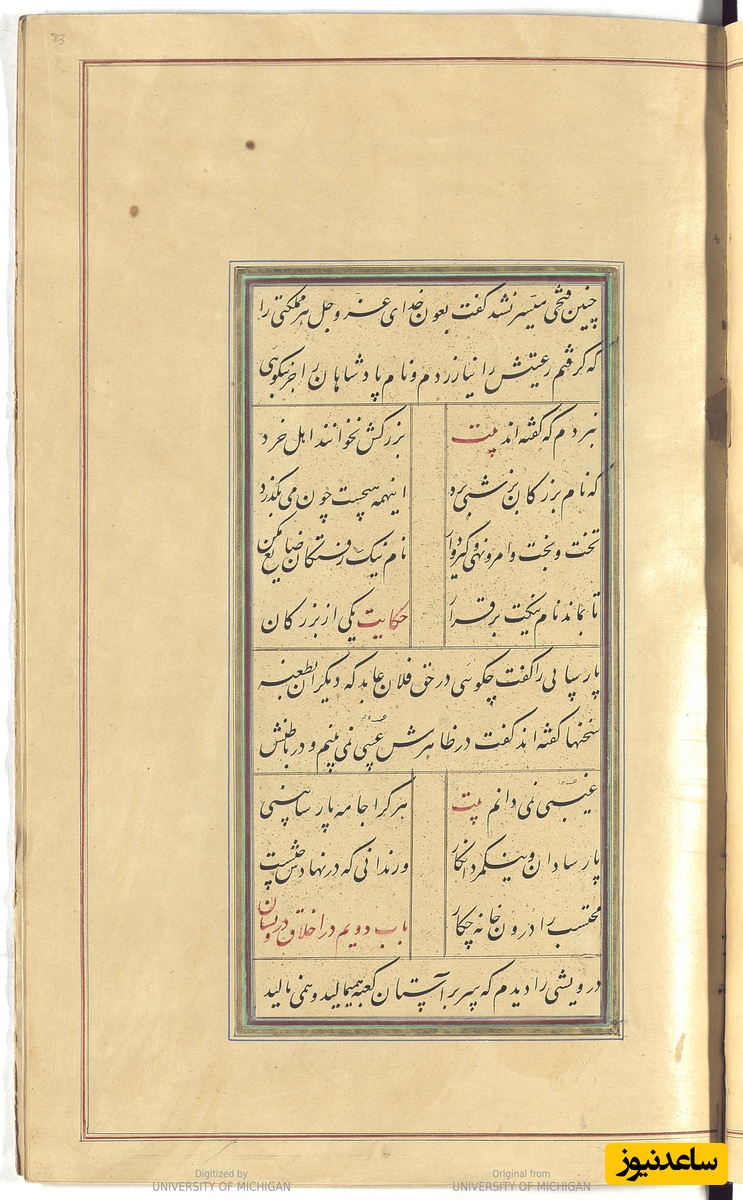 83
چنین فتحی میسر نشد گفت بعون خدای عز و جل هر مملکتی را
که گرفتم رعیتش را نیازردم و نام پادشاهان را جز بنکویی
نبردم که گفته اند بیت
بزرگش نخوانند اهل خرد
که نام بزرگان بزشتی برد
اینهمه هیچست چون می بگذرد
تخت و بخت و امر و نهی و گیر و دار
نام نیک رفتگان ضایع مکن
تا بماند نام نیکت برقرار
حکایت یکی از بزرگان
پارسایی را گفت چگویی در حق فلان عابد که دیگران بطعنه
سخنها گفته اند گفت در ظاهرش عیبی نمی بینم و در باطنش
غیبی نمی دانم بیت
هر کرا جامه پارسا بینی
پارسا دان و نیکمرد انگار
ور ندانی که در نهادش چیست
محتسب را درون خانه چکار
باب دویم در اخلاق درویشان
درویشی را دیدم که سر بر آستان کعبه همیمالید و همی نالید
ساعدنیوز
Digitized by
UNIVERSITY OF MICHIGAN
Original from
UNIVERSITY OF MICHIGAN